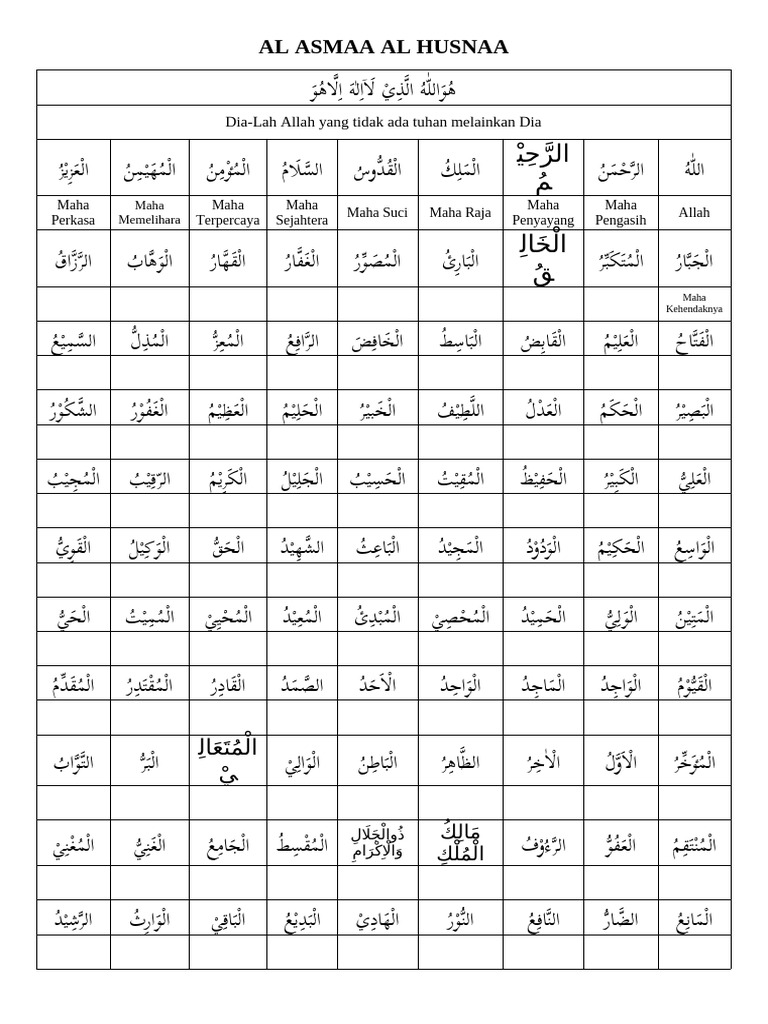 AL ASMAA AL HUSNAA
هُوَاللّٰهُ الَّذِيْ لَآاِلٰهَ اِلَّاهُوَ
Dia-Lah Allah yang tidak ada tuhan melainkan Dia
اللّٰهُ الرَّحْمَنُ الرَّحِيْمُ الْمَلِكُ الْقُدُّوسُ السَّلَامُ الْمُؤْمِنُ الْمُهَيْمِنُ الْعَزِيْزُ
Maha Perkasa Maha Memelihara Maha Terpercaya Maha Sejahtera Maha Suci Maha Raja Maha Penyayang Maha Pengasih Allah
الْجَبَّارُ الْمُتَكَبِّرُ الْخَالِقُ الْبَارِئُ الْمُصَوِّرُ الْغَفَّارُ الْقَهَّارُ الْوَهَّابُ الرَّزَّاقُ
Maha Kehendaknya
الْفَتَّاحُ الْعَلِيْمُ الْقَابِضُ الْبَاسِطُ الْخَافِضَ الرَّافِعُ الْمُعِزُّ الْمُذِلُّ السَّمِيْعُ
الْبَصِيْرُ الْحَكَمُ الْعَدْلُ اللَّطِيْفُ الْخَبِيْرُ الْحَلِيْمُ الْعَظِيْمُ الْغَفُوْرُ الشَّكُوْرُ
الْعَلِيُّ الْكَبِيْرُ الْحَفِيْظُ الْمُقِيْتُ الْحَسِيْبُ الْجَلِيْلُ الْكَرِيْمُ الرَّقِيْبُ الْمُجِيْبُ
الْوَاسِعُ الْحَكِيْمُ الْوَدُوْدُ الْمَجِيْدُ الْبَاعِثُ الشَّهِيْدُ الْحَقُّ الْوَكِيْلُ الْقَوِيُّ
الْمَتِيْنُ الْوَلِيُّ الْحَمِيْدُ الْمُحْصِيْ الْمُبْدِئُ الْمُعِيْدُ الْمُحْيِيْ الْمُمِيْتُ الْحَيُّ
الْقَيُّوْمُ الْوَاجِدُ الْمَاجِدُ الْوَاحِدُ الْاَحَدُ الصَّمَدُ الْقَادِرُ الْمُقْتَدِرُ الْمُقَدِّمُ
الْمُؤَخِّرُ الْاَوَّلُ الْاٰخِرُ الظَّاهِرُ الْبَاطِنُ الْوَالِيْ الْمُتَعَالِيْ الْبَرُّ التَّوَّابُ
الْمُنْتَقِمُ الْعَفُوُّ الرَّءُوْفُ مَالِكُ الْمُلْكِ ذُوالْجَلَالِ وَالْاِكْرَامِ الْمُقْسِطُ الْجَامِعُ الْغَنِيُّ الْمُغْنِيْ
الْمَانِعُ الضَّارُّ النَّافِعُ النُّوْرُ الْهَادِيْ الْبَدِيْعُ الْبَاقِيْ الْوَارِثُ الرَّشِيْدُ